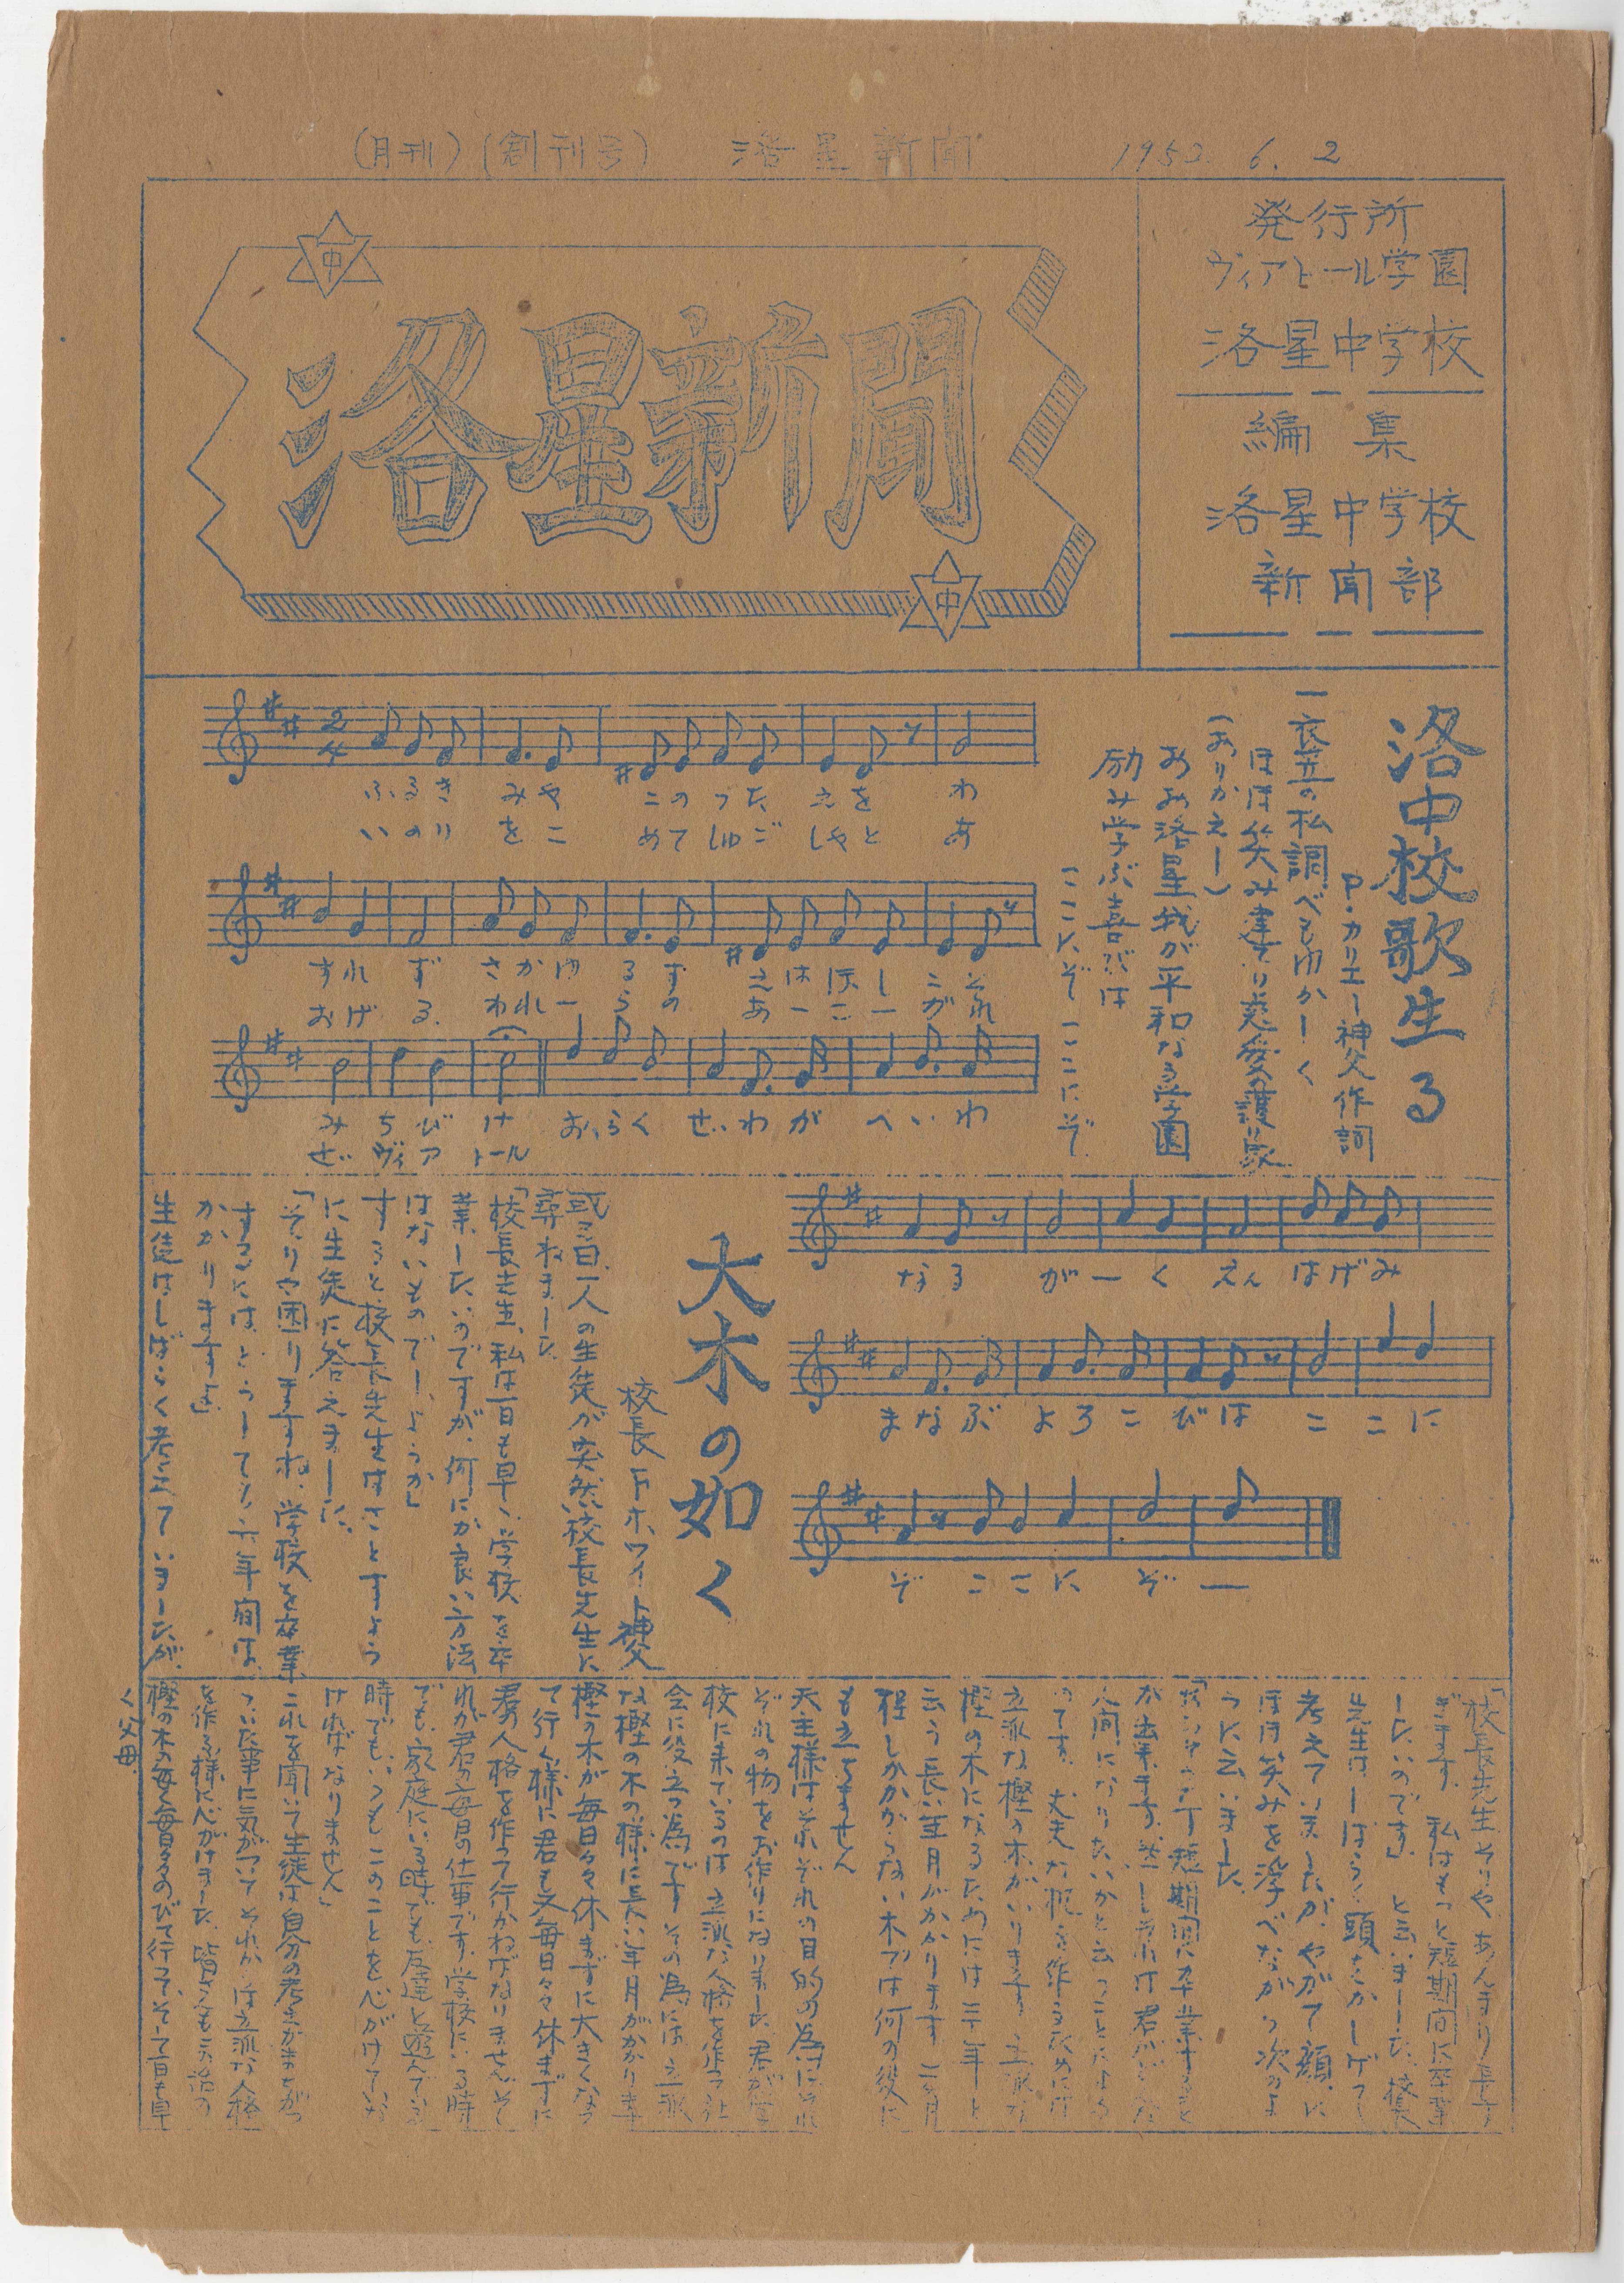 (月刊) (創刊号) 洛星新聞 1953. 6. 2
中
洛星新聞
中
発行所
ヴィアトール学園
洛星中学校
編集
洛星中学校
新聞部
洛中校歌生る
P・カリエー神父作詞
ほほ笑み建てり慈愛の護り家
(おりかえし)
ああ洛星我が平和なる学園
励み学ぶ喜びは
ここにぞ ここにぞ
2/4
ふるき みや このつた えを わ
いのり をこ めてしゅご しゃと あ
すれ ず さかゆ るず えはほし こそれ
おげ る
みちびけ おゝらく せいわが へいわ
ぜヴィアトール
なる がーく えん はげみ
まなぶ よろこびは ここに
ぞ ここに ぞー
大木の如く
校長
或る日、一人の生徒が突然校長先生に
尋ねました
「校長先生、私は一日も早く学校を卒
業したいのですが、何にか良い方法
はないものでしょうか」
すると校長先生はさとすよう
に生徒に答えました。
「そりや困りますね、学校を卒業
するには、どうしても、六年間は、
かかりますよ」
生徒はしばらく考えていましたが、
「校長先生、そりや、あんまり長す
ぎます。私はもっと短期間に卒業
したいのです」と云いました。校長
先生は、しばらく頭をかしげて
考えていましたが、やがて顔に
ほほ笑みを浮べながら次のよ
うに云いました。
が出来ます。然しそれは君がどんな
人間になりたいかと云うことによる
のです。丈夫な船を作るためには
立派な樫の木がいります。立派な
樫の木になるためには三十年と
云う長い年月がかかります。二ヶ月
程しかかからない木では何の役に
も立ちません
天主様はそれぞれの目的の為にそれ
ぞれの物をお作りになりました。君が学
校に来ているのは立派な人格を作って社
会に役立つ為です。その為には、立派
な樫の木の様に長い年月がかかります
樫の木が毎日々々休まずに大きくなっ
て行く様に君も又毎日々々休まずに
君の人格を作って行かねばなりません。そ
れが君の毎日の仕事です。学校にいる時
でも、家庭にいる時でも、友達と遊んでいる
時でも、いつもこのことを心がけていな
ければなりません」
これを聞いて生徒は自分の考えがまちがっ
ていた事に気がついてそれからは立派な人格
を作る様に心がけました。皆さんも
樫の木の毎く毎日々々のびて行って、そして一日も早
く父母